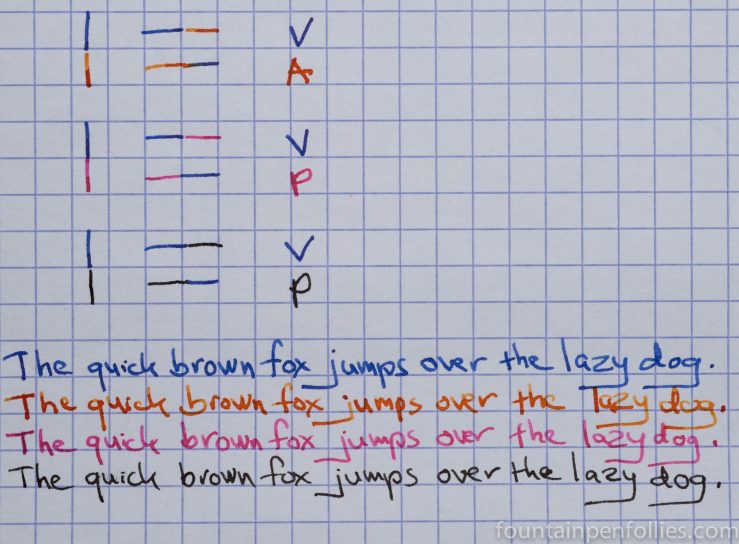 V
A
V
P
V
P
The quick brown fox jumps over the lazy dog.
The quick brown fox jumps over the lazy dog.
The quick brown fox jumps over the lazy dog.
The quick brown fox jumps over the lazy dog.
fountainpenfollies.com